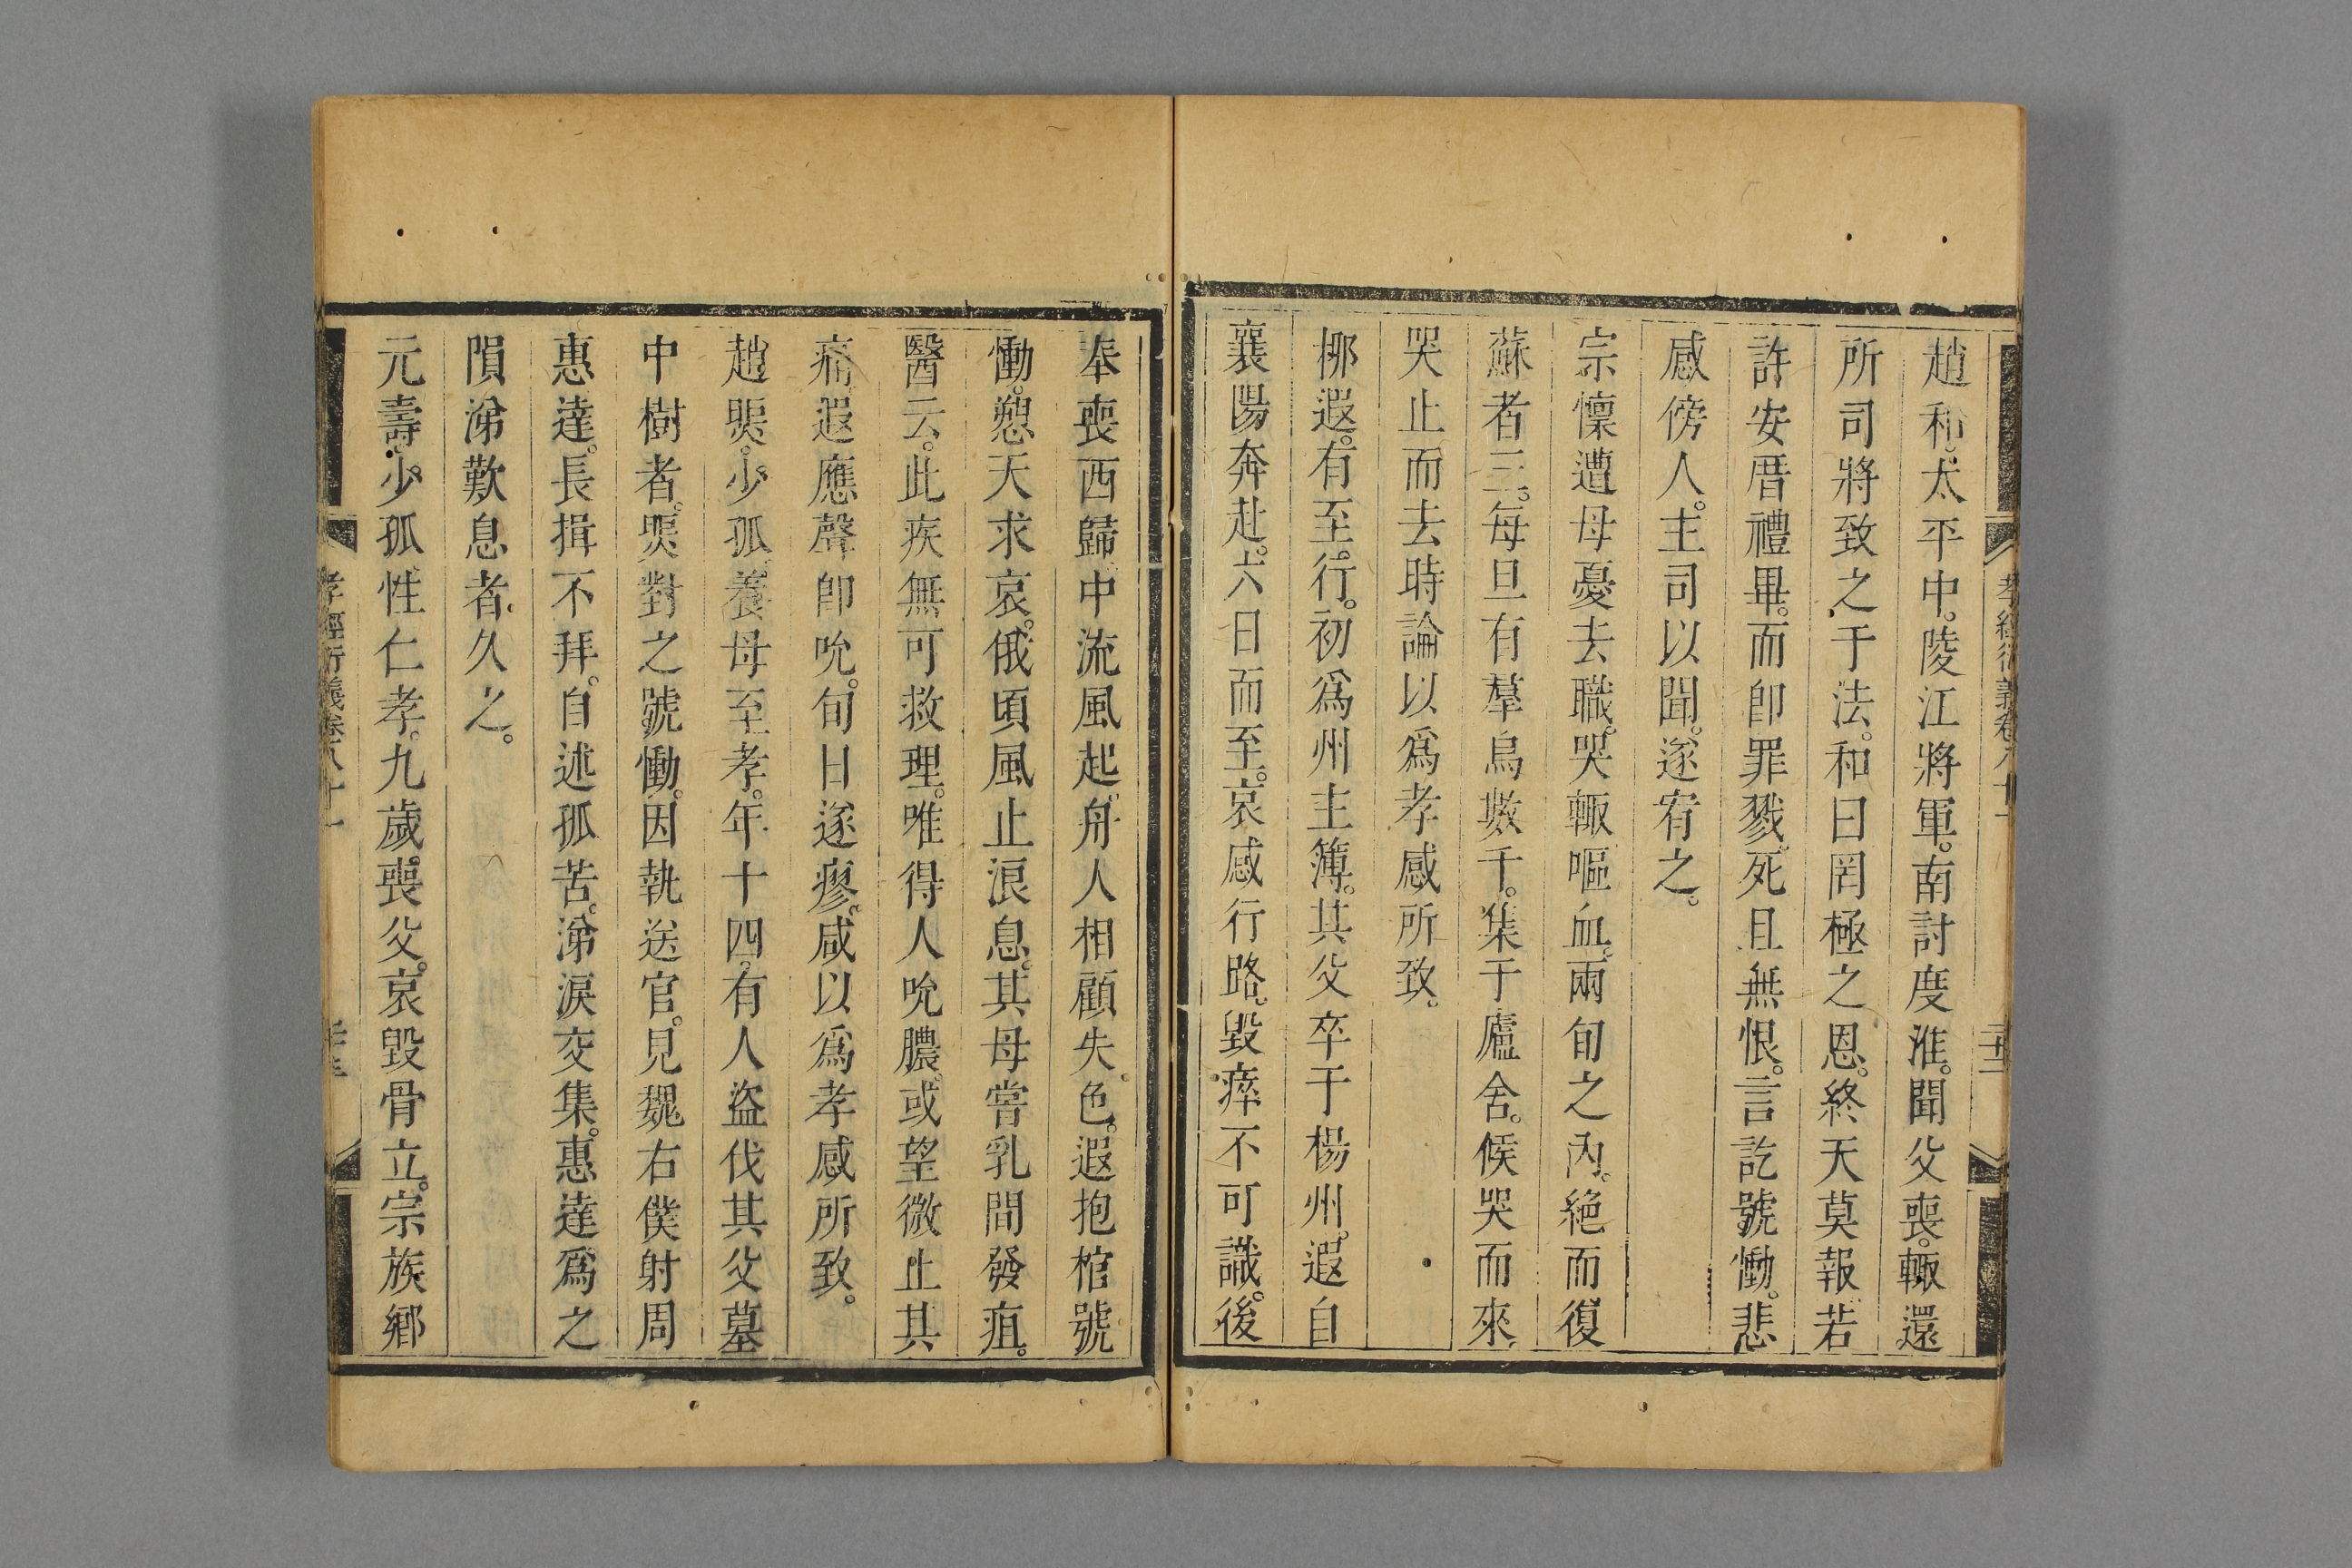 趙和。太平中。陵江將軍。南討度淮。聞父喪。輙還。
所司將致之于法。和曰罔極之恩。終天莫報。若
許安厝禮畢。而卽罪戮。死且無恨。言訖號慟。悲
感傍人。主司以聞。遂宥之。
宗懍遭母憂去職。哭輙嘔血。兩旬之內。絕而復
蘇者三。每旦有羣烏數千。集于廬舍。候哭而來。
哭止而去。時論以爲孝感所致。
栁遐。有至行。初爲州主簿。其父卒于楊州。遐自
襄陽奔赴。六日而至。哀感行路。毀瘁不可識。後
孝經衍義卷八十一
奉喪西歸。中流風起。舟人相顧失色。遐抱棺號
慟。愬天求哀。俄頃風止浪息。其母嘗乳間發疽。
醫云。此疾無可救理。唯得人吮膿。或望微止其
痛。遐應聲卽吮。旬日遂瘳。咸以爲孝感所致。
趙煚。少孤。養母至孝。年十四。有人盜伐其父墓
中樹者。煚對之號慟。因執送官。見魏右僕射周
惠達。長揖不拜。自述孤苦。涕淚交集。惠達爲之
隕涕歎息者久之。
元壽。少孤性仁孝。九歲。喪父。哀毀骨立。宗族鄉
孝經衍義卷八十一